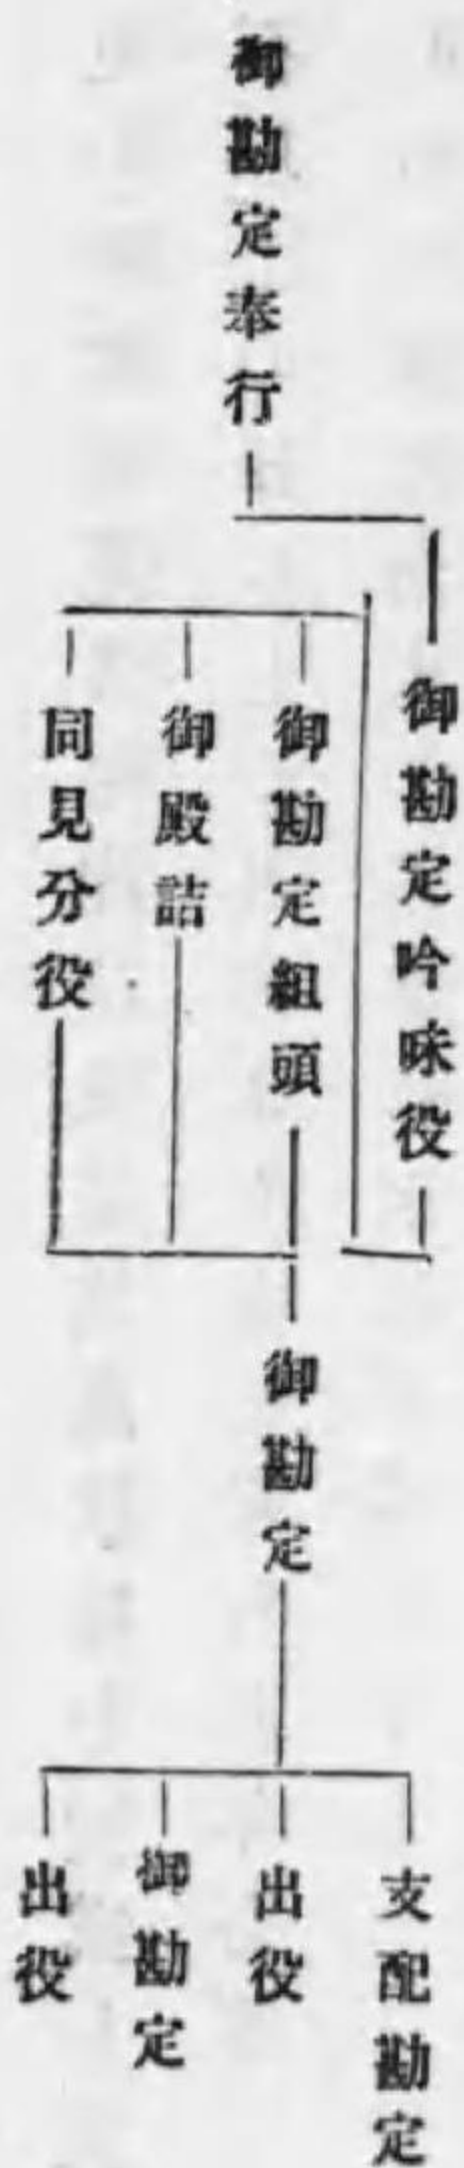 御勘定奉行
御勘定吟味役
御勘定組頭
御殿詰
同見分役
御勘定
支配勘定
出役
御勘定
出役